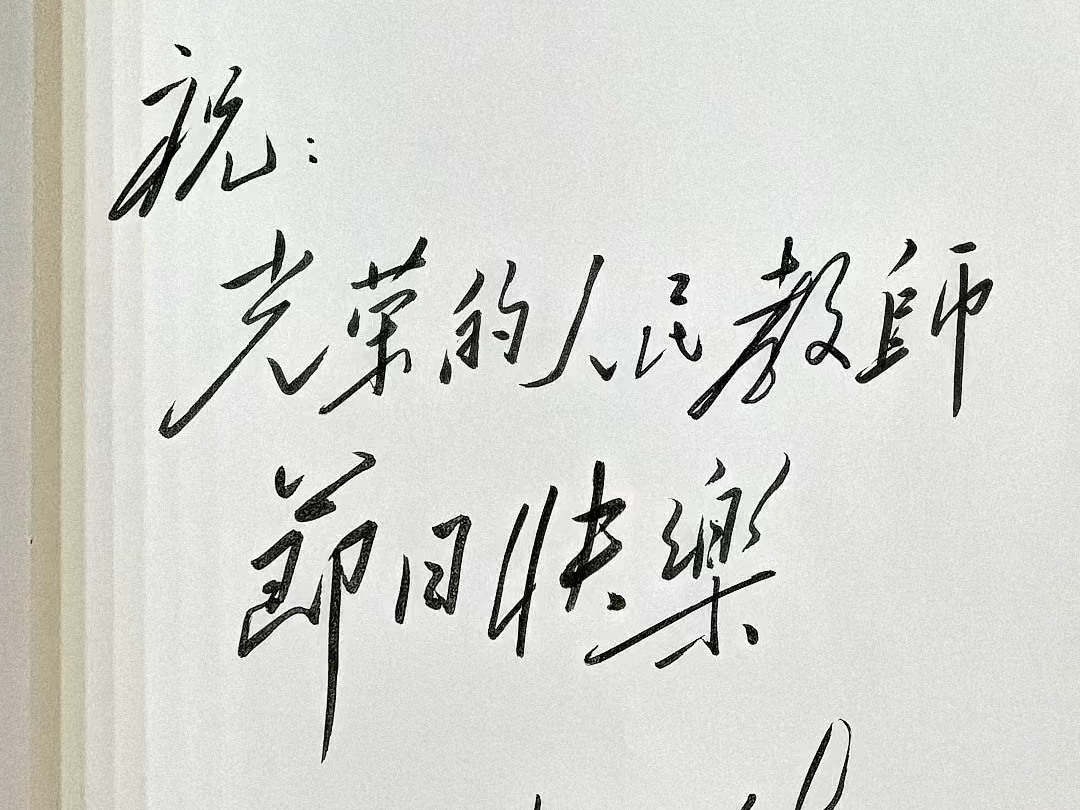 祝：
光荣的人民教師
節日快樂